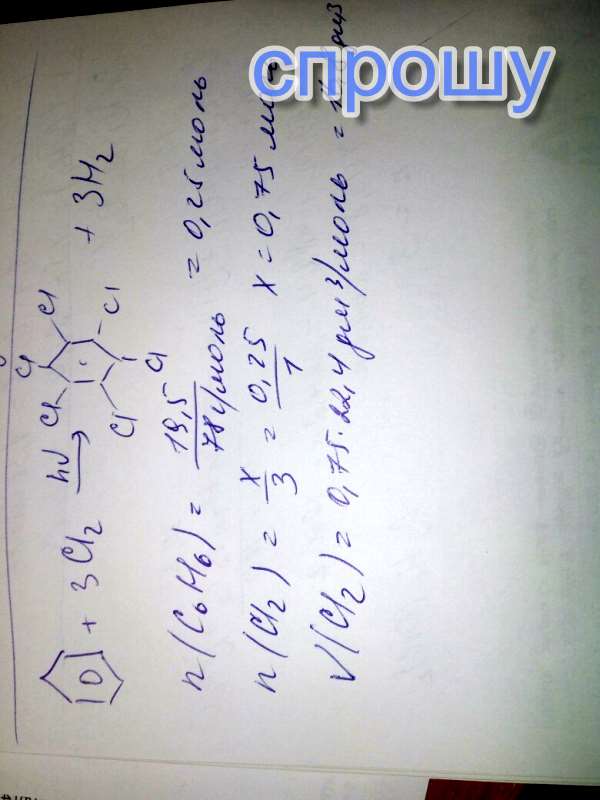 спрошу
+ 3Cl₂ hν → Cl Cl Cl Cl Cl Cl + 3H₂
n(C₆H₆) = 19,5 / 78 г/моль = 0,25 моль
n(Cl₂) = x/3 = 0,25/1 x = 0,75
V(Cl₂) = 0,75 · 22,4 дм³/моль =